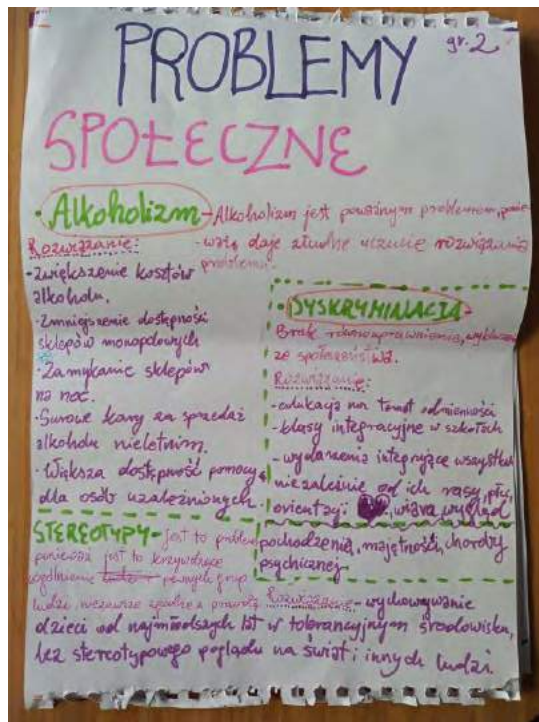 PROBLEMY
gr. 2
SPOŁECZNE
· Alkoholizm - Alkoholizm jest poważnym problemem, ponie-
-waż daje złudne uczucie rozwiązania
problemu.
Rozwiązanie:
-Zwiększenie kosztów
alkoholu.
·Zmniejszenie dostępności
sklepów monopolowych
·Zamykanie sklepów
na noc.
·Surowe kary za sprzedaż
alkoholu nieletnim.
·Większa dostępność pomocy
dla osób uzależnionych.
·DYSKRYMINACJA-
Brak równouprawnienia,
ze społeczeństwa.
Rozwiązanie:
-edukacja na temat odmienności
-klasy integracyjne w szkołach
-wydarzenia integrujące wszystkich
niezależnie od ich rasy, płci,
orientacji, wiara, wygląd
pochodzenia, majętności, choroby
psychicznej.
STEREOTYPY- jest to problem
ponieważ jest to krzywdzące
uogólnienie pewnych grup
ludzi niezawsze zgodne z prawdą
Rozwiązanie - wychowywanie
dzieci od najmłodszych lat w tolerancyjnym środowisku,
bez stereotypowego poglądu na świat i innych ludzi.